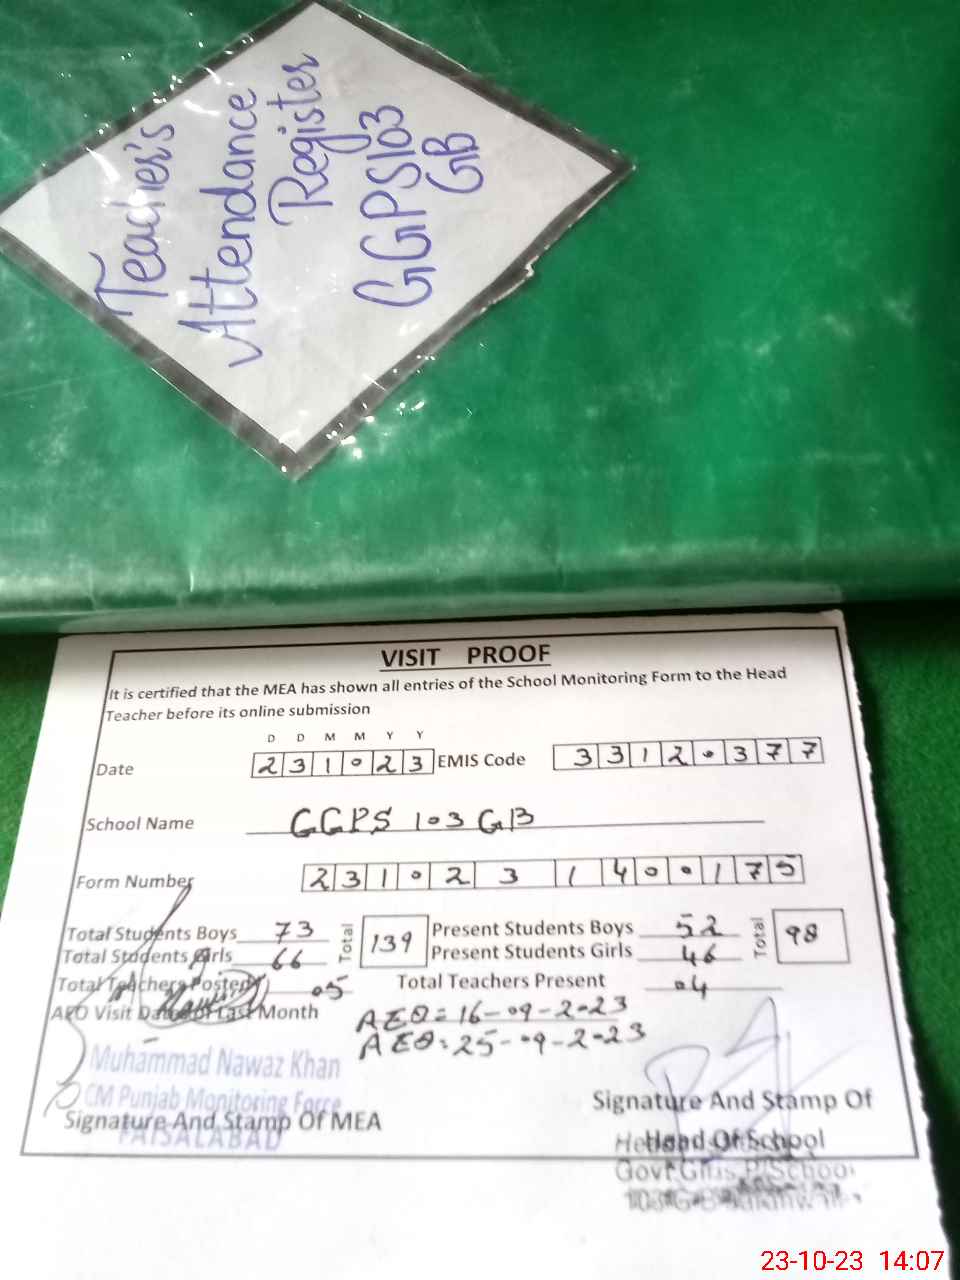 Teacher's
Attendance
Register
GGPS103
GB
VISIT PROOF
It is certified that the MEA has shown all entries of the School Monitoring Form to the Head
Teacher before its online submission
D D M M Y Y
Date 231023 EMIS Code 33120377
School Name GGPS 103 GB
Form Number 2310231400175
Total Students Boys 73 Total 139 Present Students Boys 52 Total 98
Total Students Girls 66 Present Students Girls 46
Total Teachers Posted 05 Total Teachers Present 04
AEO Visit Dates of Last Month AEO= 16-09-2023
AEO: 25-09-2023
Muhammad Nawaz Khan
CM Punjab Monitoring Force
FAISALABAD
Signature And Stamp Of MEA
Signature And Stamp Of
Head Of School
Head
Govt Girls P/School
23-10-23 14:07